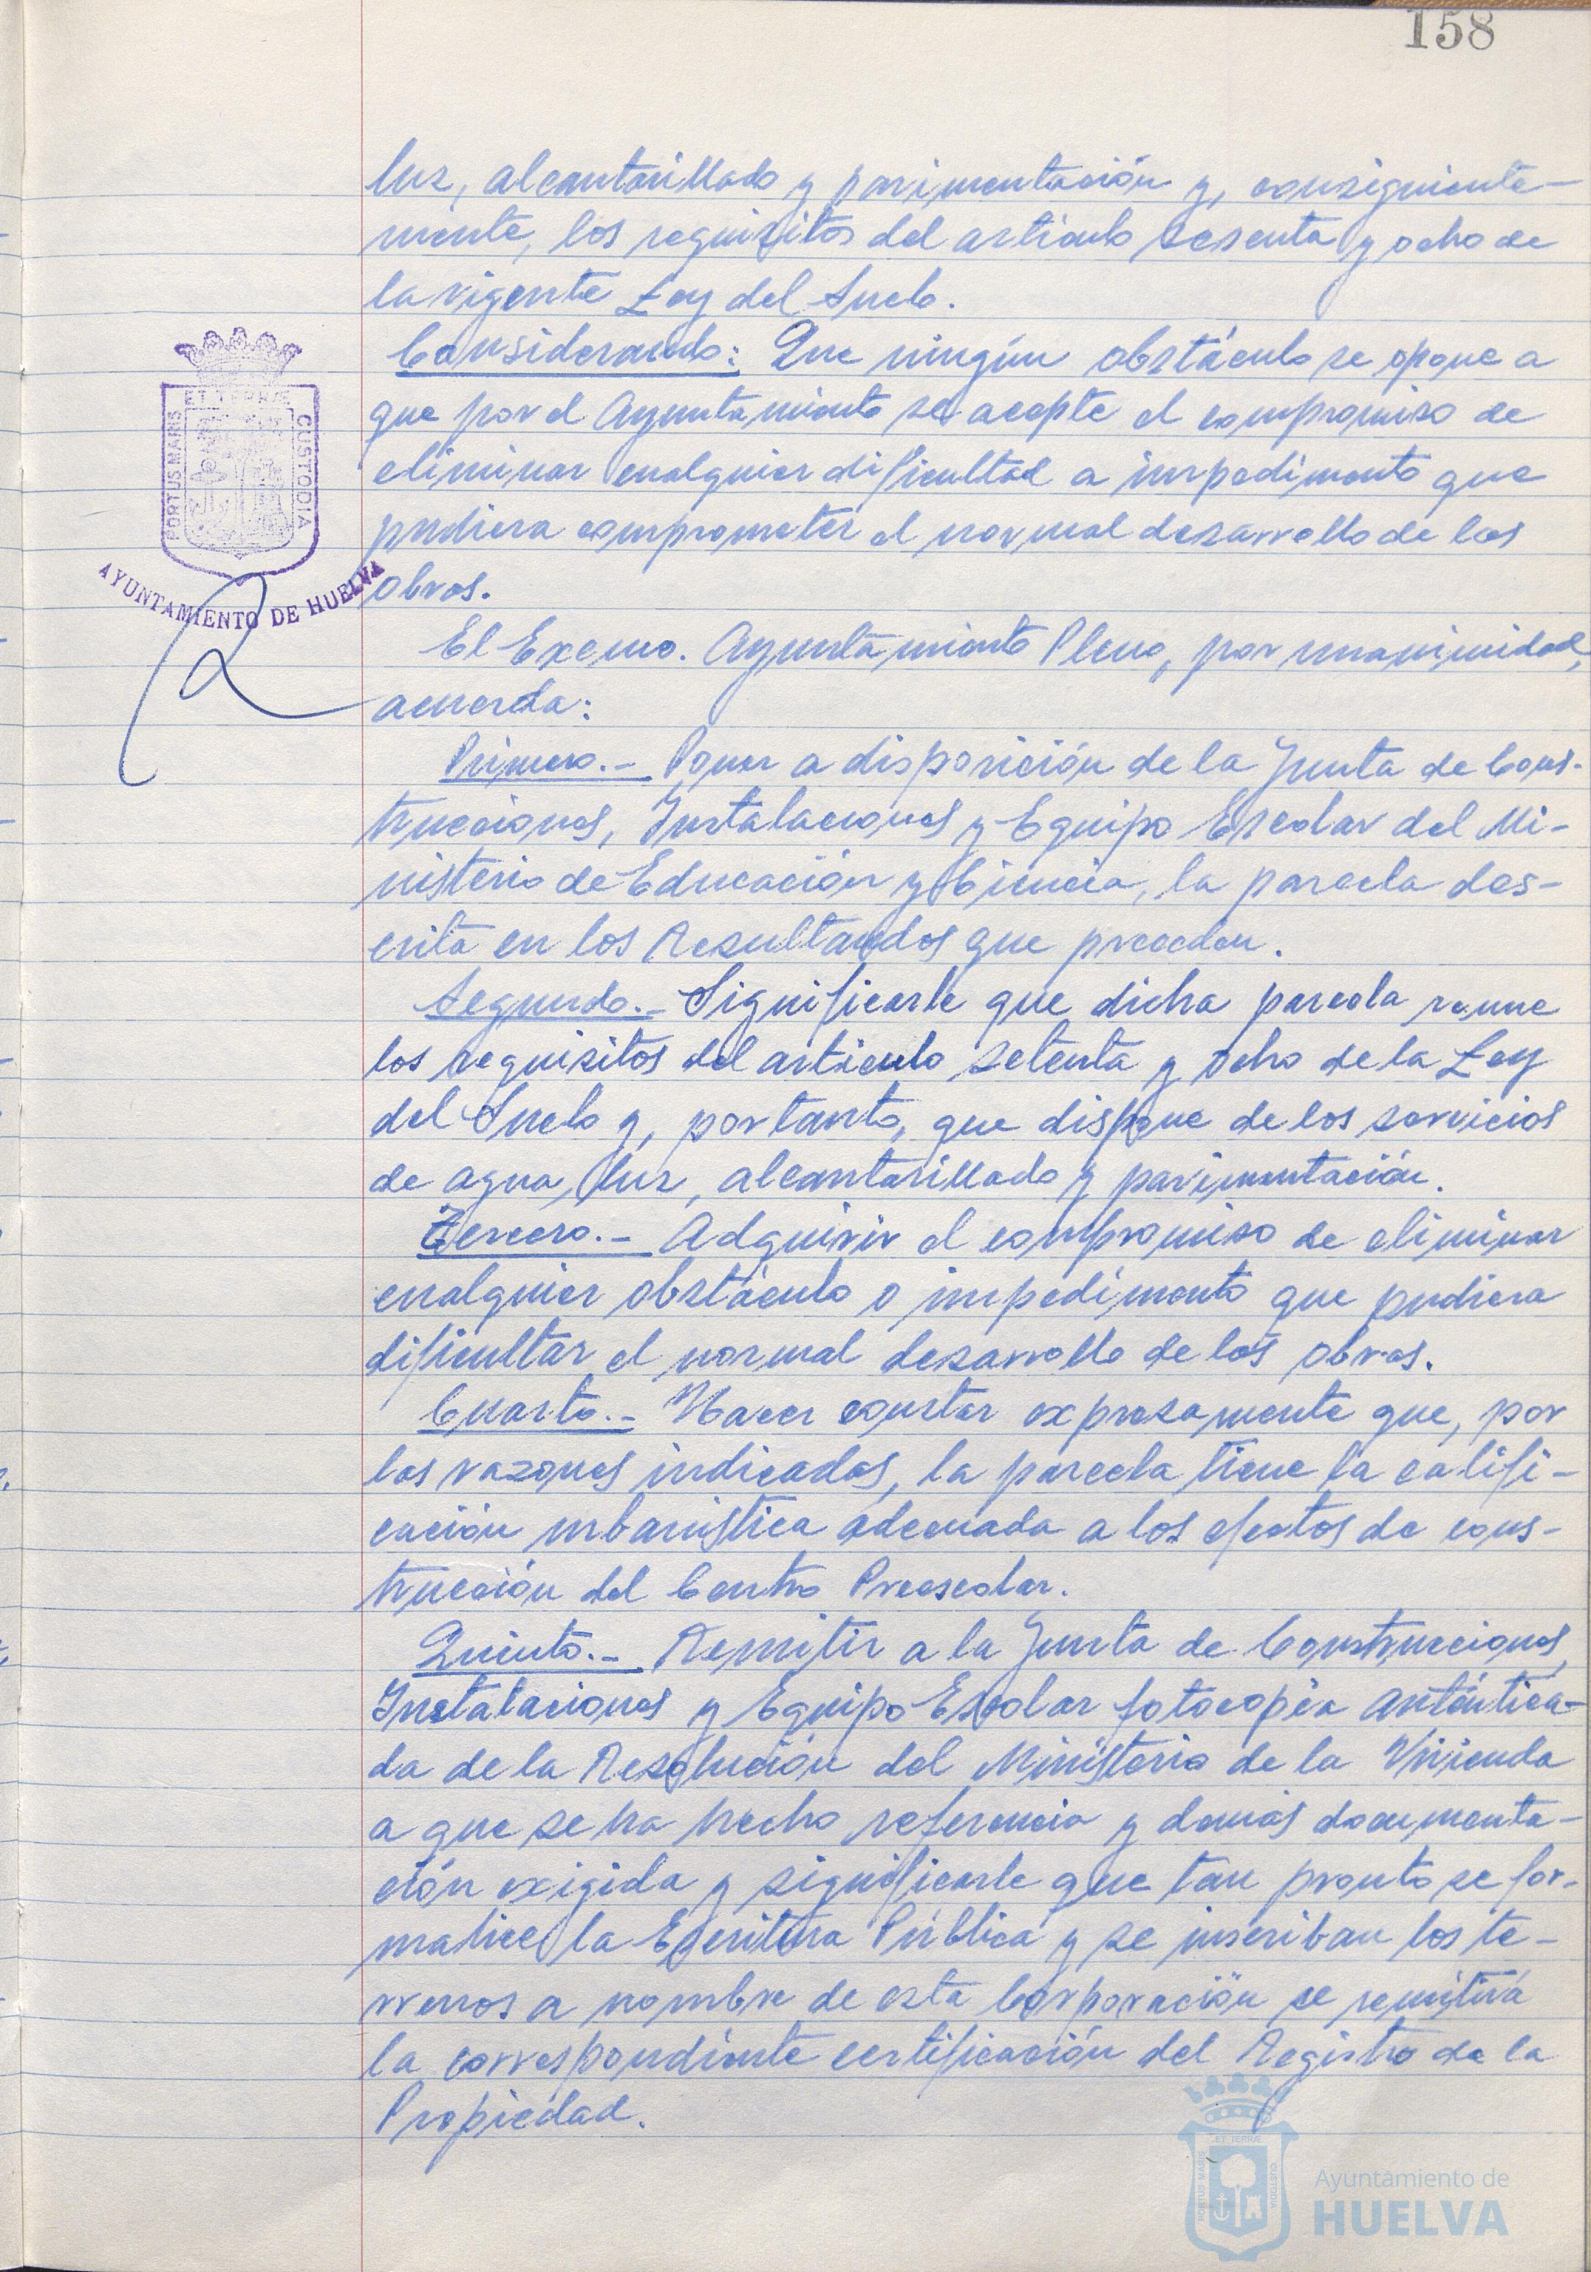 158
luz, alcantarillado y pavimentación y, consiguiente-
mente, los requisitos del artículo sesenta y ocho de
la vigente Ley del Suelo.
Considerando: Que ningún obstáculo se opone a
que por el Ayuntamiento se acepte el compromiso de
eliminar cualquier dificultad a impedimento que
pudiera comprometer el normal desarrollo de las
obras.
El Excmo. Ayuntamiento Pleno, por unanimidad,
acuerda:
Primero.- Poner a disposición de la Junta de Cons-
trucciones, Instalaciones y Equipo Escolar del Mi-
nisterio de Educación y Ciencia, la parcela des-
crita en los Resultandos que preceden.
Segundo.- Significarle que dicha parcela reune
los requisitos del artículo setenta y ocho de la Ley
del Suelo y, por tanto, que dispone de los servicios
de agua, luz, alcantarillado y pavimentación.
Tercero.- Adquirir el compromiso de eliminar
cualquier obstáculo o impedimento que pudiera
dificultar el normal desarrollo de las obras.
Cuarto.- Hacer constar expresamente que, por
las razones indicadas, la parcela tiene la califi-
cación urbanística adecuada a los efectos de cons-
trucción del Centro Preescolar.
Quinto.- Remitir a la Junta de Construcciones,
Instalaciones y Equipo Escolar fotocopia autentica-
da de la Resolución del Ministerio de la Vivienda
a que se ha hecho referencia y demás documenta-
ción exigida y significarle que tan pronto se for-
malice la Escritura Pública y se inscriban los te-
rrenos a nombre de esta Corporación se remitirá
la correspondiente certificación del Registro de la
Propiedad.
PORTUS MARIS
ET TERRÆ
CUSTODIA
AYUNTAMIENTO DE HUELVA
PORTUS MARIS
ET TERRÆ
CUSTODIA
Ayuntamiento de
HUELVA